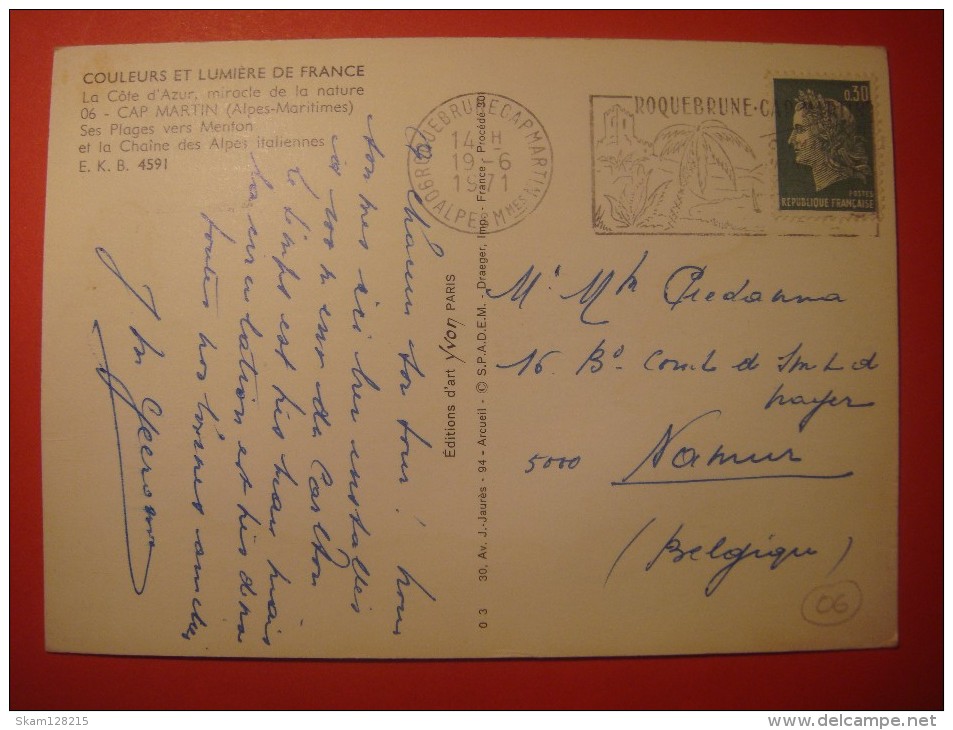 COULEURS ET LUMIÈRE DE FRANCE
La Côte d'Azur, miracle de la nature
06 - CAP MARTIN (Alpes-Maritimes)
Ses Plages vers Menton
et la Chaîne des Alpes italiennes
E. K. B. 4591
chacun son tour ! nous
sommes ici très installés
à 100 m de Carlton
le temps est très beau mais
la circulation est très
toutes nos bonnes amitiés
Editions d'art Yvon PARIS
0 3 30, Av. J.-Jaurès - 94 - Arcueil - © S.P.A.D.E.M. - Draeger, Imp. - France - Procédé 301
ROQUEBRUNE CAP MARTIN
14 H
19 - 6
1971
ALPES Mmes
ROQUEBRUNE-CAP
0,30
POSTES
REPUBLIQUE FRANÇAISE
Mr Mme
16 Bd de Smet de
Nayer
5000 Namur
(Belgique)
06
Skam128215
delcampe.net